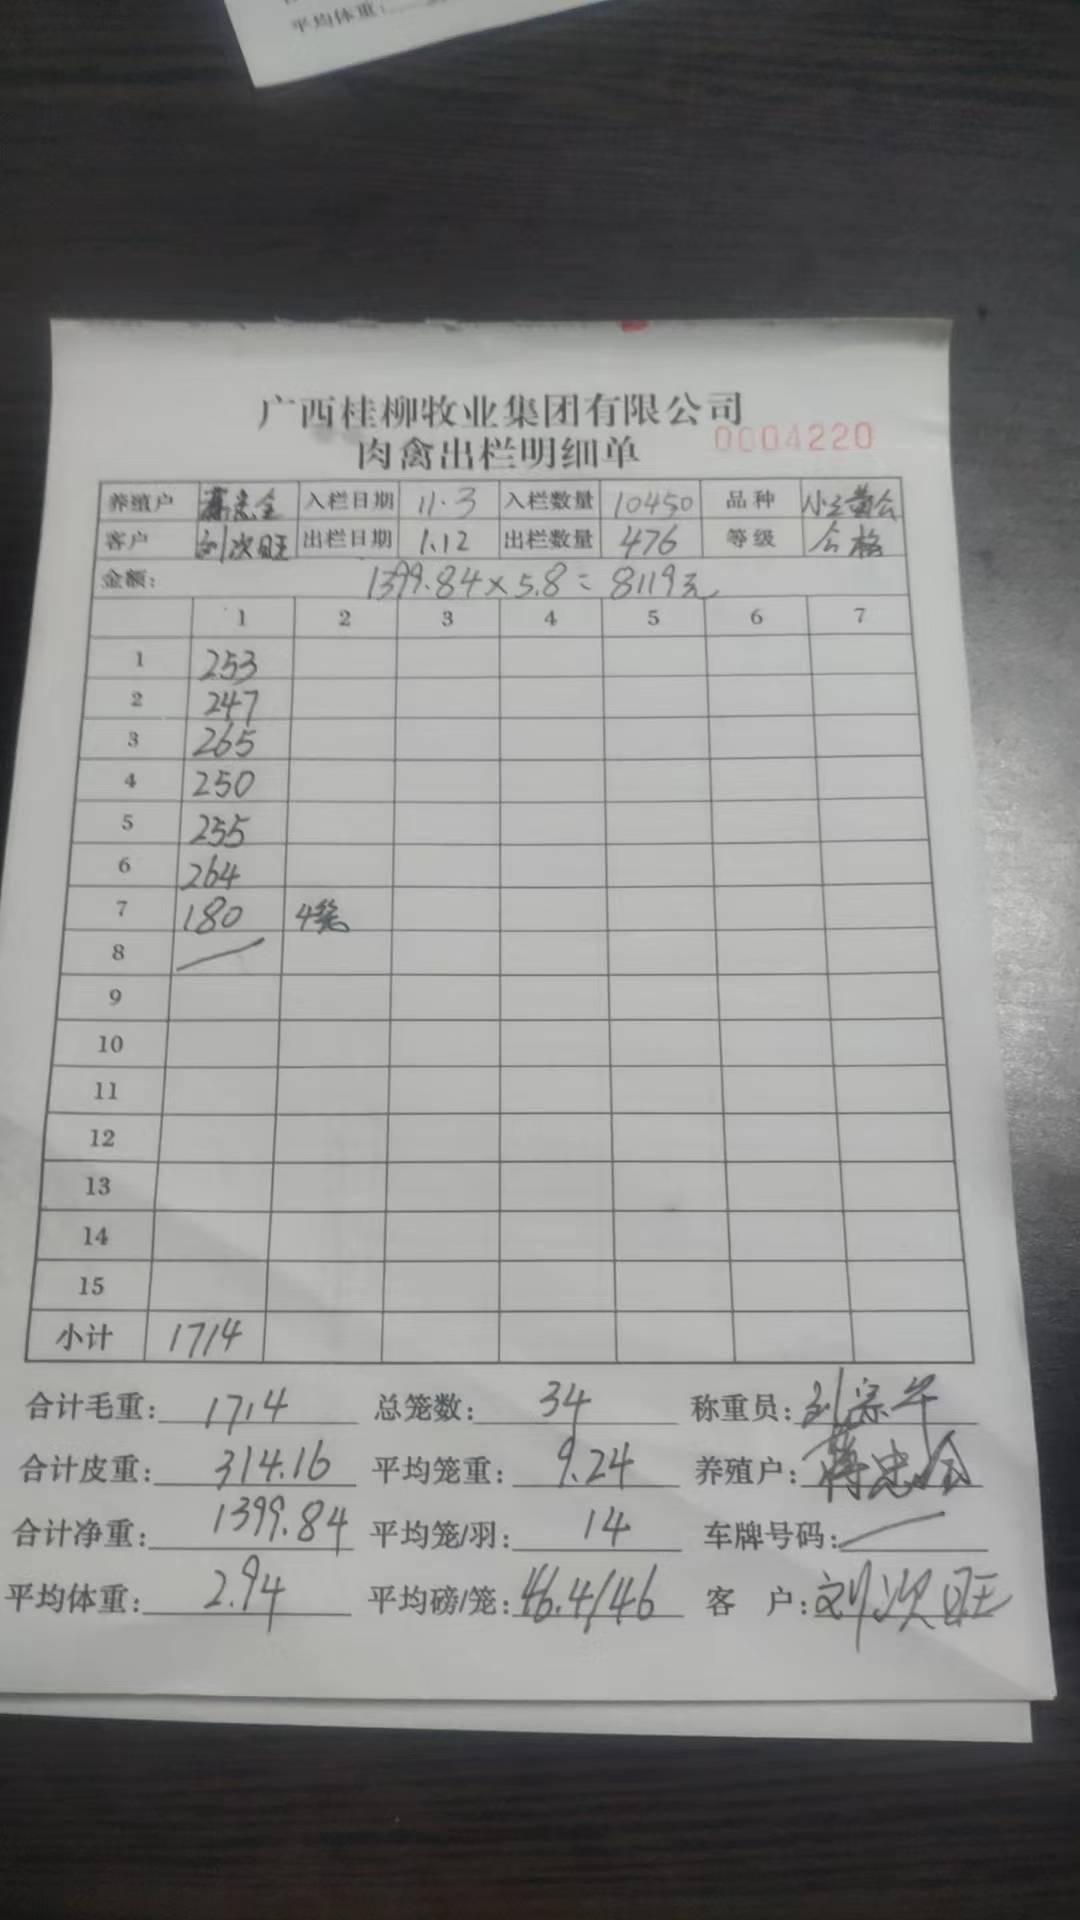 平均体重:
广西桂柳牧业集团有限公司
肉禽出栏明细单 0004220
养殖户 蒋忠全 入栏日期 11.3 入栏数量 10450 品种
客户 刘次旺 出栏日期 1.12 出栏数量 476 等级 合格
金额: 1399.84×5.8=8119元
1 2 3 4 5 6 7
1 253
2 247
3 265
4 250
5 255
6 264
7 180 4笼
8
9
10
11
12
13
14
15
小计 1714
合计毛重: 1714 总笼数: 34 称重员: 刘宗华
合计皮重: 314.16 平均笼重: 9.24 养殖户: 蒋忠全
合计净重: 1399.84 平均笼/羽: 14 车牌号码:
平均体重: 2.94 平均磅/笼: 46.4/46 客 户: 刘次旺